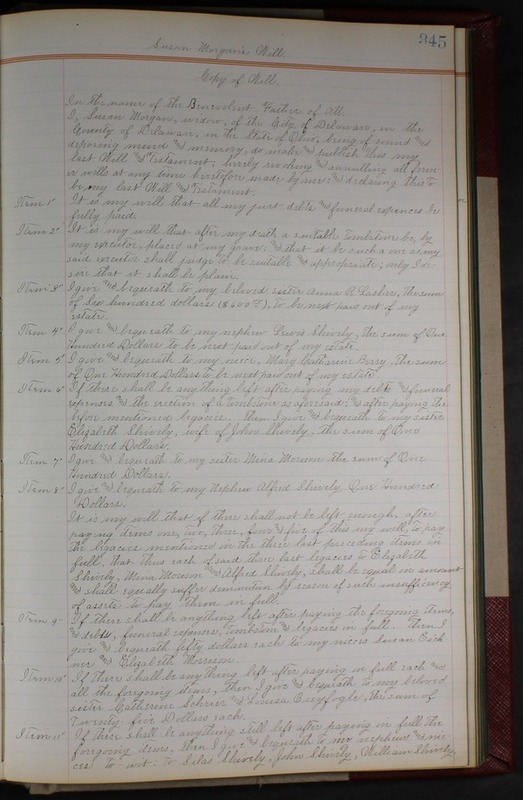 345
Susan Morgan's Will.
Copy of Will.
In the name of the Benevolent Father of All.
I, Susan Morgan, widow, of the City of Delaware, in the
County of Delaware, in the State of Ohio, being of sound and
disposing mind and memory, do make and publish this my
last Will and Testament; hereby revoking and annulling all former
wills at any time heretofore made by me; and declaring this to
be my last Will and Testament.
Item 1st It is my will that all my just debts and funeral expenses be
fully paid.
Item 2d It is my will that after my death a suitable Tombstone be, by
my executor, placed at my grave. and that it be such a one as my
said executor shall judge to be suitable and appropriate; only I de-
sire that it shall be plain.
Item 3d I give and bequeath to my beloved sister Anna R. Lasher, the sum
of Six hundred dollars ($600 00), to be next paid out of my
estate.
Item 4" I give and bequeath to my nephew Lewis Shively, the sum of One
Hundred Dollars to be next paid out of my estate.
Item 5" I give and bequeath to my niece, Mary Catharine Berry, the sum
of One Hundred Dollars to be next paid out of my estate.
Item 6" If there shall be anything left after paying my debts and funeral
expenses and the erection of a tombstone as aforesaid; and after paying the
before mentioned legacies, then I give and bequeath to my sister
Elizabeth Shively, wife of John Shively, the sum of One
Hundred Dollars.
Item 7" I give and bequeath to my sister Mina Morison the sum of One
Hundred Dollars.
Item 8" I give and bequeath to my Nephew Alfred Shively One Hundred
Dollars.
It is my will that if there shall not be left enough, after
paying items one, two, three, four and five of this my will, to pay
the legacies mentioned in the three last preceding items in
full, that then each of said three last legacies to Elizabeth
Shively, Mina Morison and Alfred Shively, shall be equal in amount
and shall equally suffer diminution by reason of such insufficiency
of assets to pay them in full.
Item 9" If there shall be anything left after paying the foregoing items,
and debts, funeral expenses, tombstone and legacies in full. Then I
give and bequeath fifty dollars each to my nieces Susan
and Elizabeth Morison.
Item 10" If there shall be anything left after paying in full each and
all the foregoing items, then I give and bequeath to my beloved
sister Catherine and Louisa Cuyfogle, the sum of
Twenty five Dollars each.
Item 11" If there shall be anything still left after paying in full the
foregoing items, then I give and bequeath to my nephews and nie-
ces to wit: To Silas Shively, John Shively, William Shively,